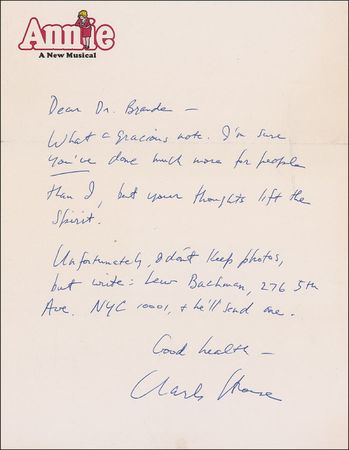 Annie
A New Musical
Dear Dr. Brande –
What a gracious note. I'm sure
you've done much more for people
than I, but your thoughts lift the
spirit.
Unfortunately, I don't keep photos,
but write: Lew Bachman, 276 5th
Ave. NYC 10001, & he'll send one.
Good health –
Charles Strouse